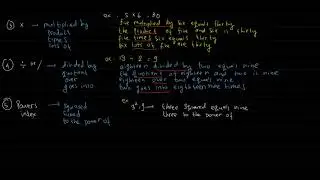 ③ × → multiplied by ex. 5×6 = 30
products five multiplied by six equals thirty
times the products of five and six is thirty
lots of five times six equals thirty
six lots of five are thirty
④ ÷ or / → divided by ex. 18 ÷ 2 = 9
quotient eighteen divided by two equals nine
over the quotient of eighteen and two is nine
goes into eighteen over two equals nine
two goes into eighteen nine times
⑤ Powers → squared ex
index cubed → three squared equals nine
to the power of three to the power of